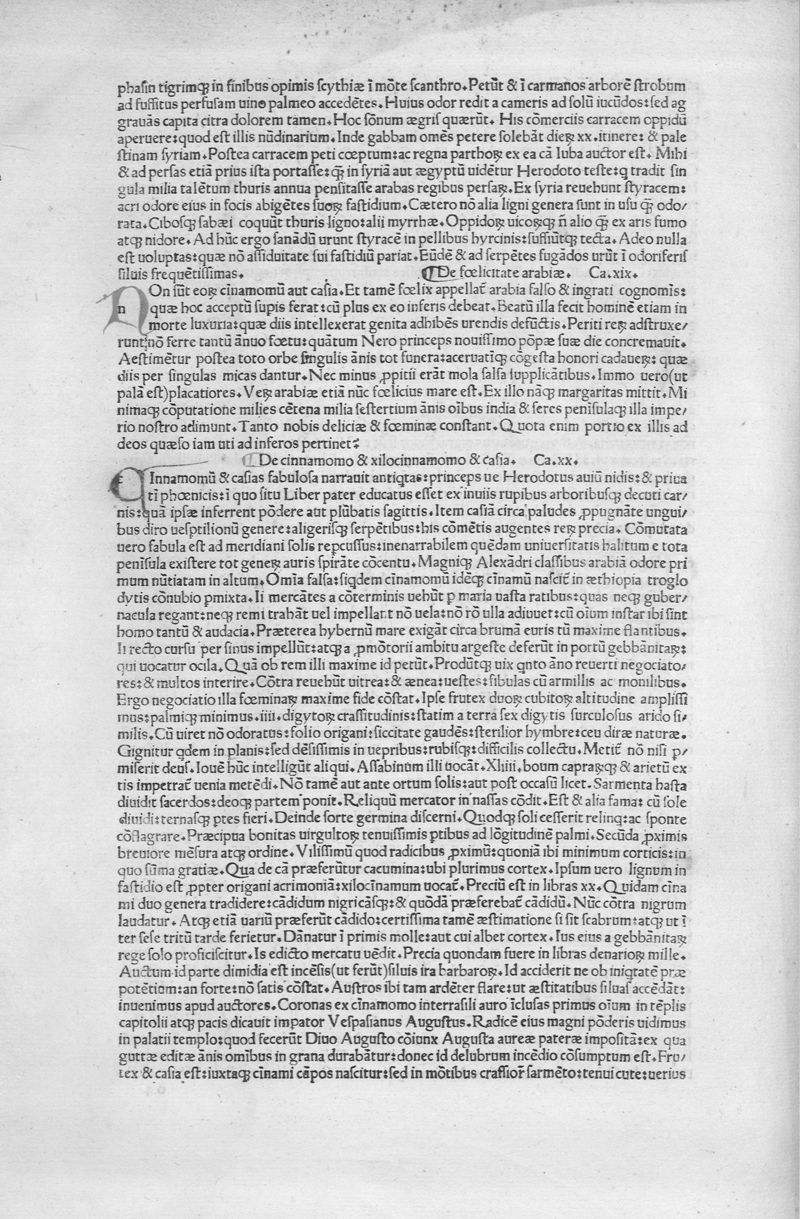 phasin tigrimꝙ in finibus opimis scythiæ ī mōte scanthro. Petūt & ī carmanos arborē strobum
ad suffitus perfusam uino palmeo accedētes. Huius odor redit a cameris ad solū iucūdos: sed ag
grauās capita citra dolorem tamen. Hoc sōnum ægris quærūt. His cōmerciis carracem oppidū
aperuere: quod est illis nūdinarium. Inde gabbam omēs petere solebāt dieꝝ xx. itinere: & pale
stinam syriam. Postea carracem peti cœptum: ac regna parthoꝝ ex ea cā Iuba auctor est. Mihi
& ad persas etiā prius ista portasse: ꝙ̄ in syriā aut ægyptū uidētur Herodoto teste: q tradit sin
gula milia talētum thuris annua pensitasse arabas regibus persaꝝ. Ex syria reuehunt styracem:
acri odore eius in focis abigētes suoꝝ fastidium. Cætero nō alia ligni genera sunt in usu ꝙ̄ odo/
rata. Cibosꝙ sabæi coquūt thuris ligno: alii myrrhæ. Oppidoꝝ uicoꝝꝙ n̄ alio ꝙ̄ ex aris fumo
atꝙ nidore. Ad hūc ergo sanādū urunt styracē in pellibus hyrcinis: suffiūtꝙ tecta. Adeo nulla
est uoluptas: quæ nō assiduitate sui fastidiū pariat. Eūdē & ad serpētes fugādos urūt ī odoriferis
siluis frequētissimas. ¶De fœlicitate arabiæ. Ca.xix.
NOn sūt eoꝝ cinamomū aut casia. Et tamē fœlix appellat̄ arabia falso & ingrati cognomīs:
n quæ hoc acceptū supis ferat: cū plus ex eo inferis debeat. Beatū illa fecit hominē etiam in
morte luxuria: quæ diis intellexerat genita adhibēs urendis defūctis. Periti reꝝ adstruxe/
runt: nō ferre tantū ānuo fœtu: quātum Nero princeps nouissimo pōpæ suæ die concremauit.
Aestimētur postea toto orbe singulis ānis tot funera: aceruatīꝙ cōgesta honori cadaueꝝ: quæ
diis per singulas micas dantur. Nec minus ꝓpitii erāt mola salsa supplicātibus. Immo uero(ut
palā est)placatiores. Veꝝ arabiæ etiā nūc fœlicius mare est. Ex illo nāꝙ margaritas mittit. Mi
nimaꝙ cōputatione milies cētena milia sestertium ānis oībus india & seres penīsulaꝙ illa impe/
rio nostro adimunt. Tanto nobis deliciæ & fœminæ constant. Quota enim portio ex illis ad
deos quæso iam uti ad inferos pertinet?
¶De cinnamomo & xilocinnamomo & casia. Ca.xx.
CInnamomū & casias fabulosa narrauit antiqtas: princeps ue Herodotus auiū nidis: & priua
tī phœnicis: ī quo situ Liber pater educatus esset ex inuiis rupibus arboribusꝙ decuti car/
nis: quā ipsæ inferrent pōdere aut plūbatis sagittis. Item casiā circa paludes ꝓpugnāte ungui/
bus diro uesptilionū genere: aligerisꝙ serpētibus: his cōmētis augentes reꝝ precia. Cōmutata
uero fabula est ad meridiani solis repcussus: inenarrabilem quēdam uniuersitatis halitum e tota
penīsula existere tot geneꝝ auris spirāte cōcentu. Magniꝙ Alexādri classibus arabiā odore pri
mum nūtiatam in altum. Omīa falsa: siqdem cīnamomū idēꝙ cīnamū nascit̄ in æthiopia troglo
dytis cōnubio pmixta. Ii mercātes a cōterminis uehūt p maria uasta ratibus: quas neꝙ guber/
nacula regant: neꝙ remi trahāt uel impellant nō uela: nō rō ulla adiuuet: cū oīum instar ibi sint
homo tantū & audacia. Præterea hybernū mare exigāt circa brumā euris tū maxime flantibus.
Ii recto cursu per sinus impellūt: atꝙ a ꝓmōtorii ambitu argeste deferūt in portū gebbānitaꝝ:
qui uocatur ocila. Quā ob rem illi maxime id petūt. Prodūtꝙ uix qnto āno reuerti negociato/
res: & multos interire. Cōtra reuehūt uitrea: & ænea: uestes: fibulas cū armillis ac monilibus.
Ergo negociatio illa fœminaꝝ maxime fide cōstat. Ipse frutex duoꝝ cubitoꝝ altitudine amplissi
mus: palmiꝙ minimus .iiii. digytoꝝ crassitudinis: statim a terra sex digytis surculosus arido si/
milis. Cū uiret nō odoratus: folio origani: siccitate gaudēs: sterilior hymbre: ceu diræ naturæ.
Gignitur qdem in planis: sed dēsissimis in uepribus: rubisꝙ: difficilis collectu. Metit̄ nō nisi p/
miserit deus. Iouē hūc intelligūt aliqui. Assabinum illi uocāt. Xliiii. boum capraꝝꝙ & arietū ex
tis impetrat̄ uenia metēdi. Nō tamē aut ante ortum solis: aut post occasū licet. Sarmenta hasta
diuidit sacerdos: deoꝙ partem ponit. Reliquū mercator in nassas cōdit. Est & alia fama: cū sole
diuidi: ternasꝙ ptes fieri. Deinde sorte germina discerni. Quodꝙ soli cesserit relinq: ac sponte
cōflagrare. Præcipua bonitas uirgultoꝝ tenuissimis ptibus ad lōgitudinē palmi. Secūda ꝓximis
breuiore mēsura atꝙ ordine. Vilissimū quod radicibus ꝓximū: quoniā ibi minimum corticis: in
quo sūma gratiæ. Qua de cā præferūtur cacumina: ubi plurimus cortex. Ipsum uero lignum in
fastidio est ꝓpter origani acrimoniā: xilocīnamum uocat̄. Preciū est in libras xx. Quidam cīna
mi duo genera tradidere: cādidum nigricāsꝙ: & quōdā præferebat̄ cādidū. Nūc cōtra nigrum
laudatur. Atꝙ etiā uariū præferūt cādido: certissima tamē æstimatione si sit scabrum: atꝙ ut ī
ter sese tritū tarde ferietur. Dānatur ī primis molle: aut cui albet cortex. Ius eius a gebbānitaꝝ
rege solo proficiscitur. Is edicto mercatu uēdit. Precia quondam fuere in libras denarioꝝ mille.
Auctum id parte dimidia est incēsis(ut ferūt)siluis ira barbaroꝝ. Id acciderit ne ob iniqtatē præ
potētium: an forte: nō satis cōstat. Austros ibi tam ardēter flare: ut æstitatibus siluas accēdāt:
inuenimus apud auctores. Coronas ex cīnamomo interrasili auro īclusas primus oīum in tēplis
capitolii atꝙ pacis dicauit impator Vespasianus Augustus. Radicē eius magni pōderis uidimus
in palatii templo: quod fecerūt Diuo Augusto cōiunx Augusta aureæ pateræ impositā: ex qua
guttæ editæ ānis omībus in grana durabātur: donec id delubrum incēdio cōsumptum est. Fru/
tex & casia est: iuxtaꝙ cīnami cāpos nascitur: sed in mōtibus crassior̄ sarmēto: tenui cute: uerius